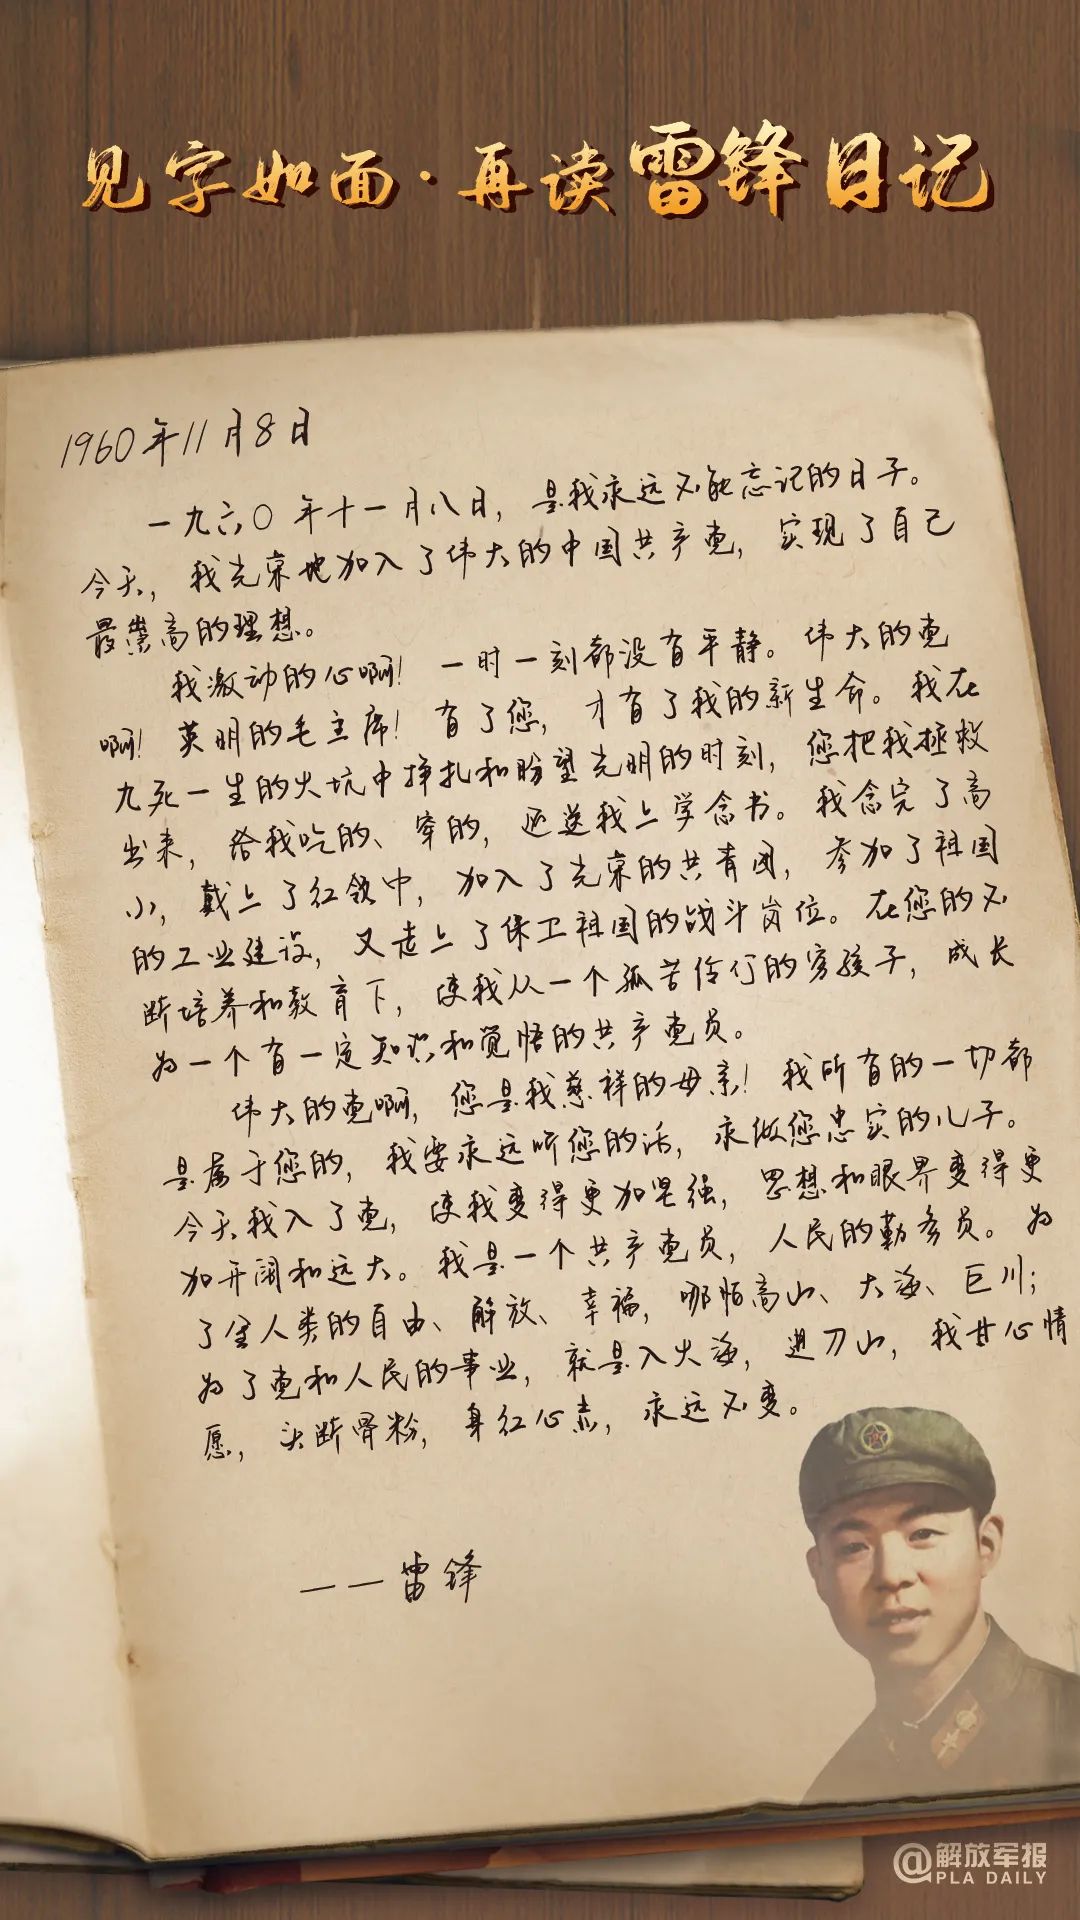 见字如面·再读雷锋日记
1960年11月8日
一九六〇年十一月八日，是我永远不能忘记的日子。
今天，我光荣地加入了伟大的中国共产党，实现了自己
最崇高的理想。
我激动的心啊！一时一刻都没有平静。伟大的党
啊！英明的毛主席！有了您，才有了我的新生命。我在
九死一生的火坑中挣扎和盼望光明的时刻，您把我拯救
出来，给我吃的、穿的，还送我上学念书。我念完了高
小，戴上了红领巾，加入了光荣的共青团，参加了祖国
的工业建设，又走上了保卫祖国的战斗岗位。在您的不
断培养和教育下，使我从一个孤苦伶仃的穷孩子，成长
为一个有一定知识和觉悟的共产党员。
伟大的党啊，您是我慈祥的母亲！我所有的一切都
是属于您的，我要永远听您的话，永做您忠实的儿子。
今天我入了党，使我变得更加坚强，思想和眼界变得更
加开阔和远大。我是一个共产党员，人民的勤务员。为
了全人类的自由、解放、幸福，哪怕高山、大海、巨川；
为了党和人民的事业，就是入火海，进刀山，我甘心情
愿，头断骨粉，身红心赤，永远不变。
——雷锋
@解放军报
PLA DAILY